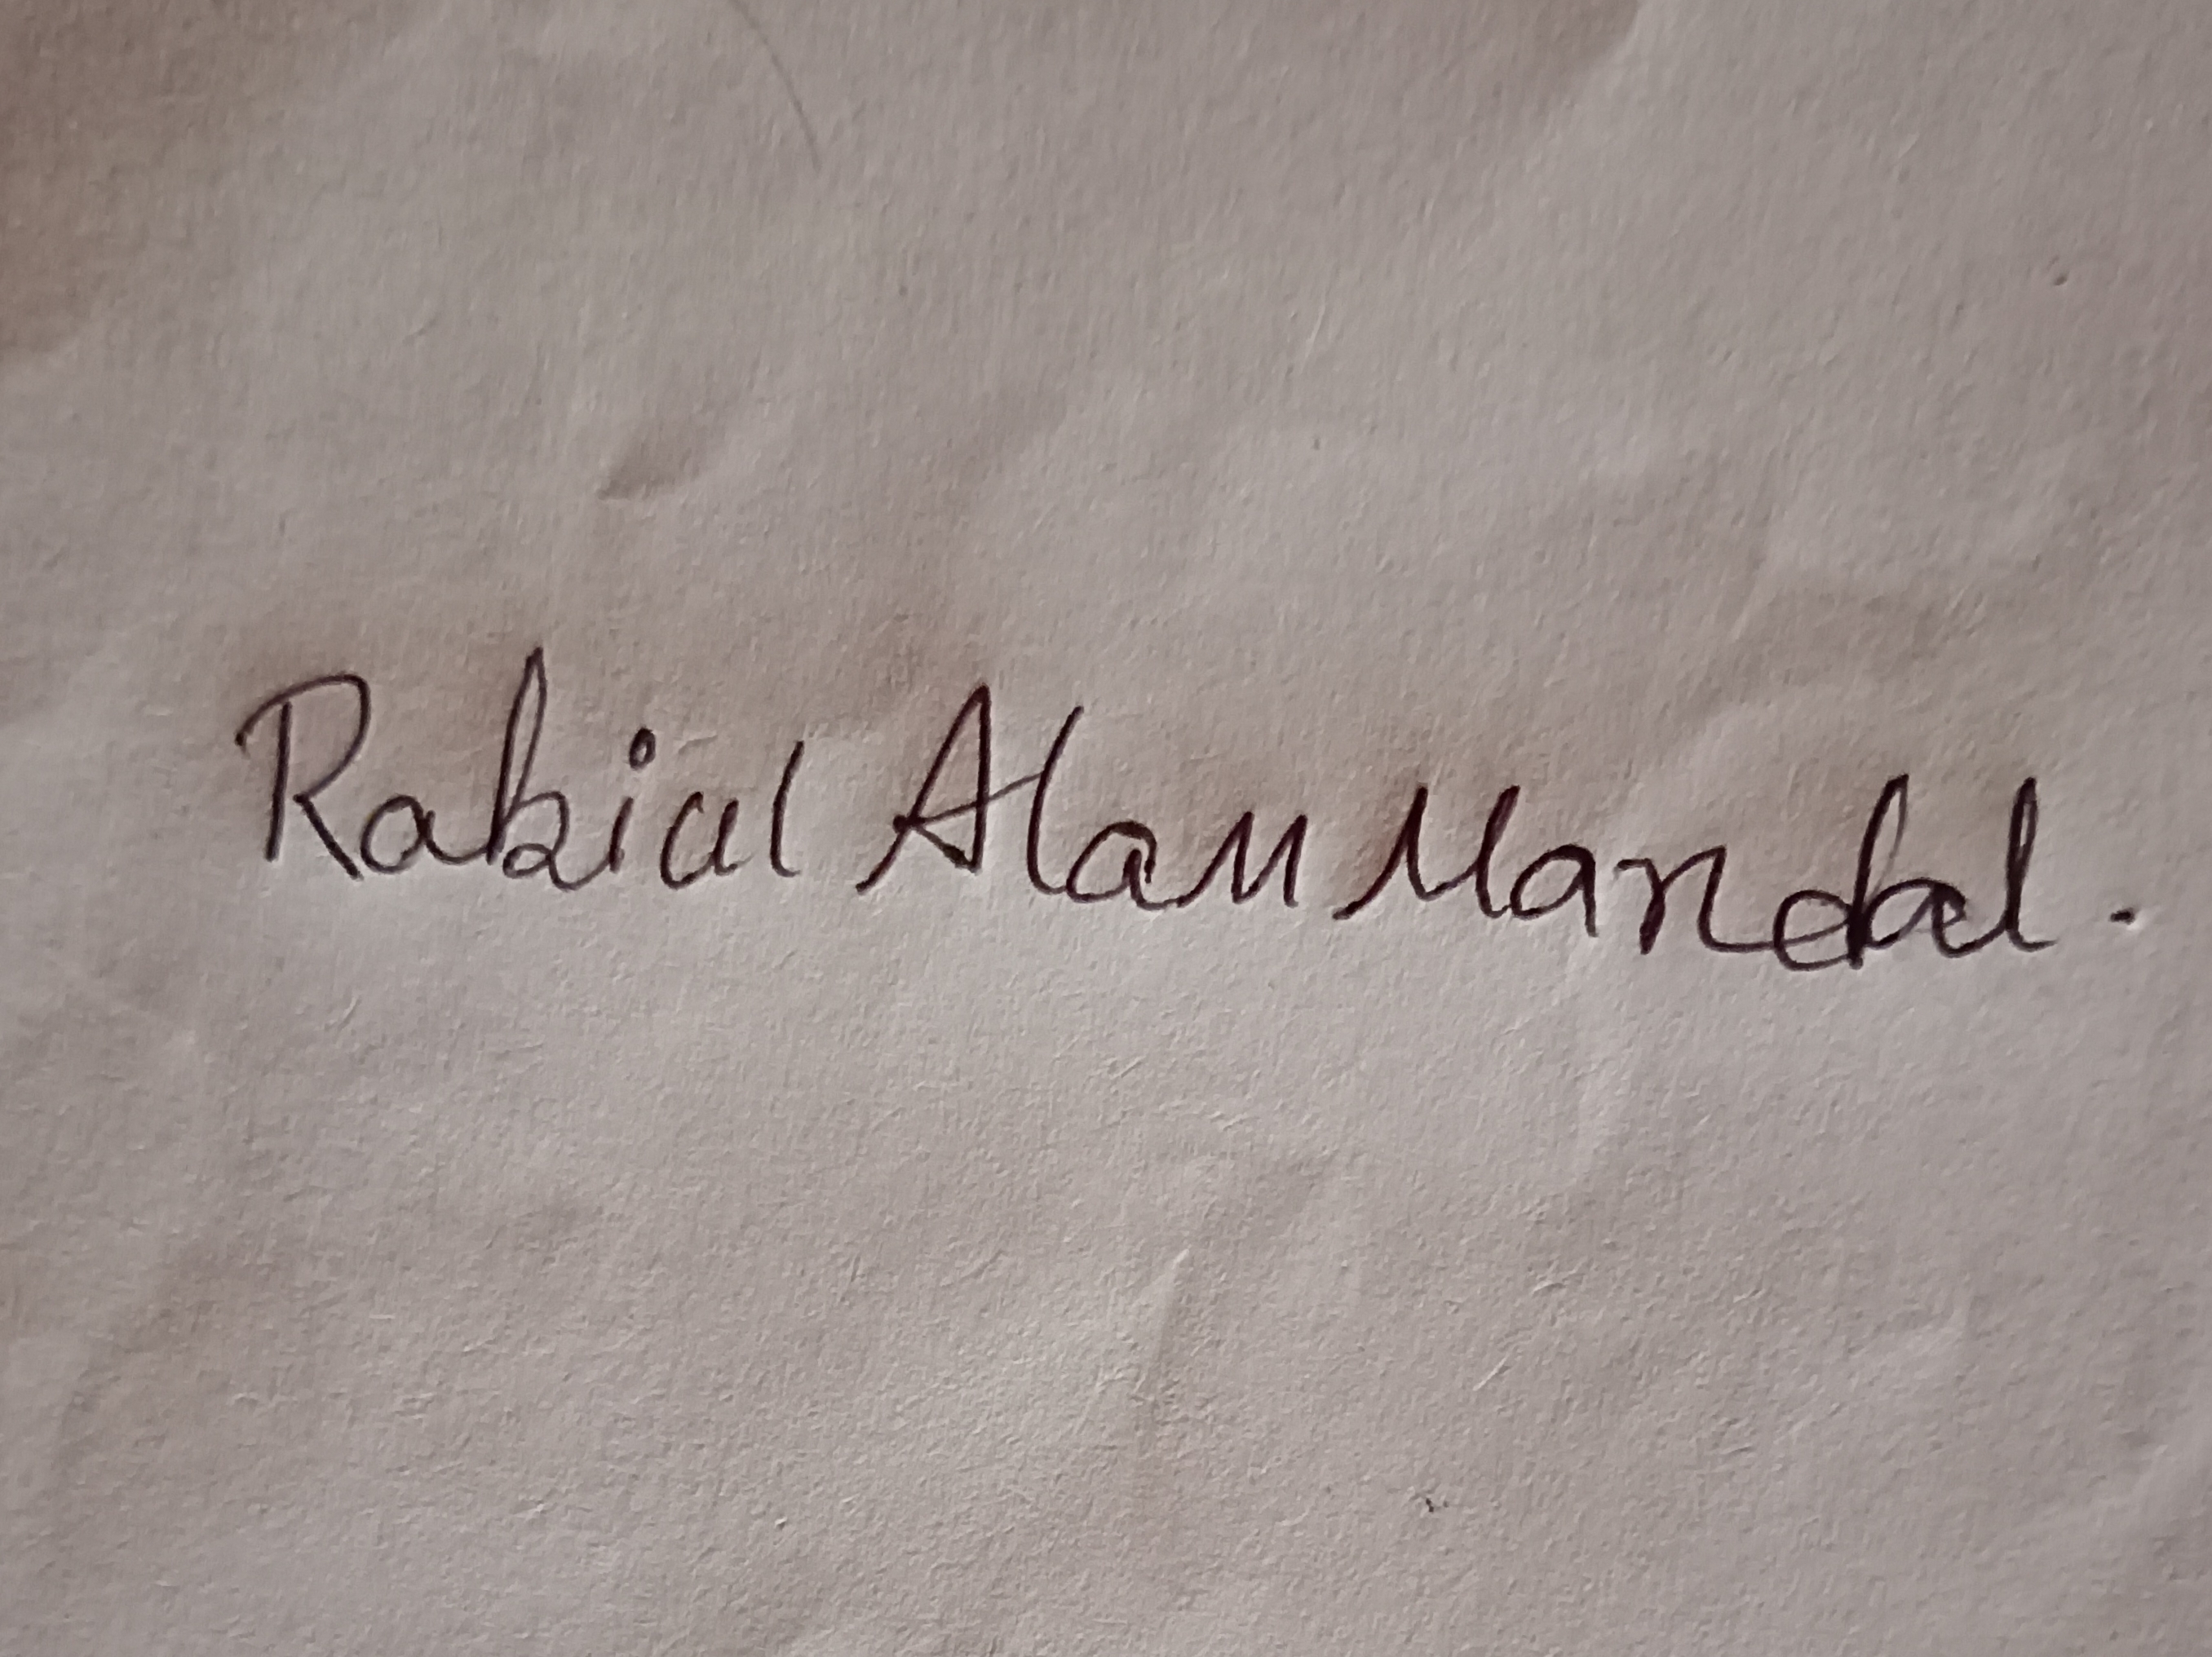 Rabiul Alam Mandal.